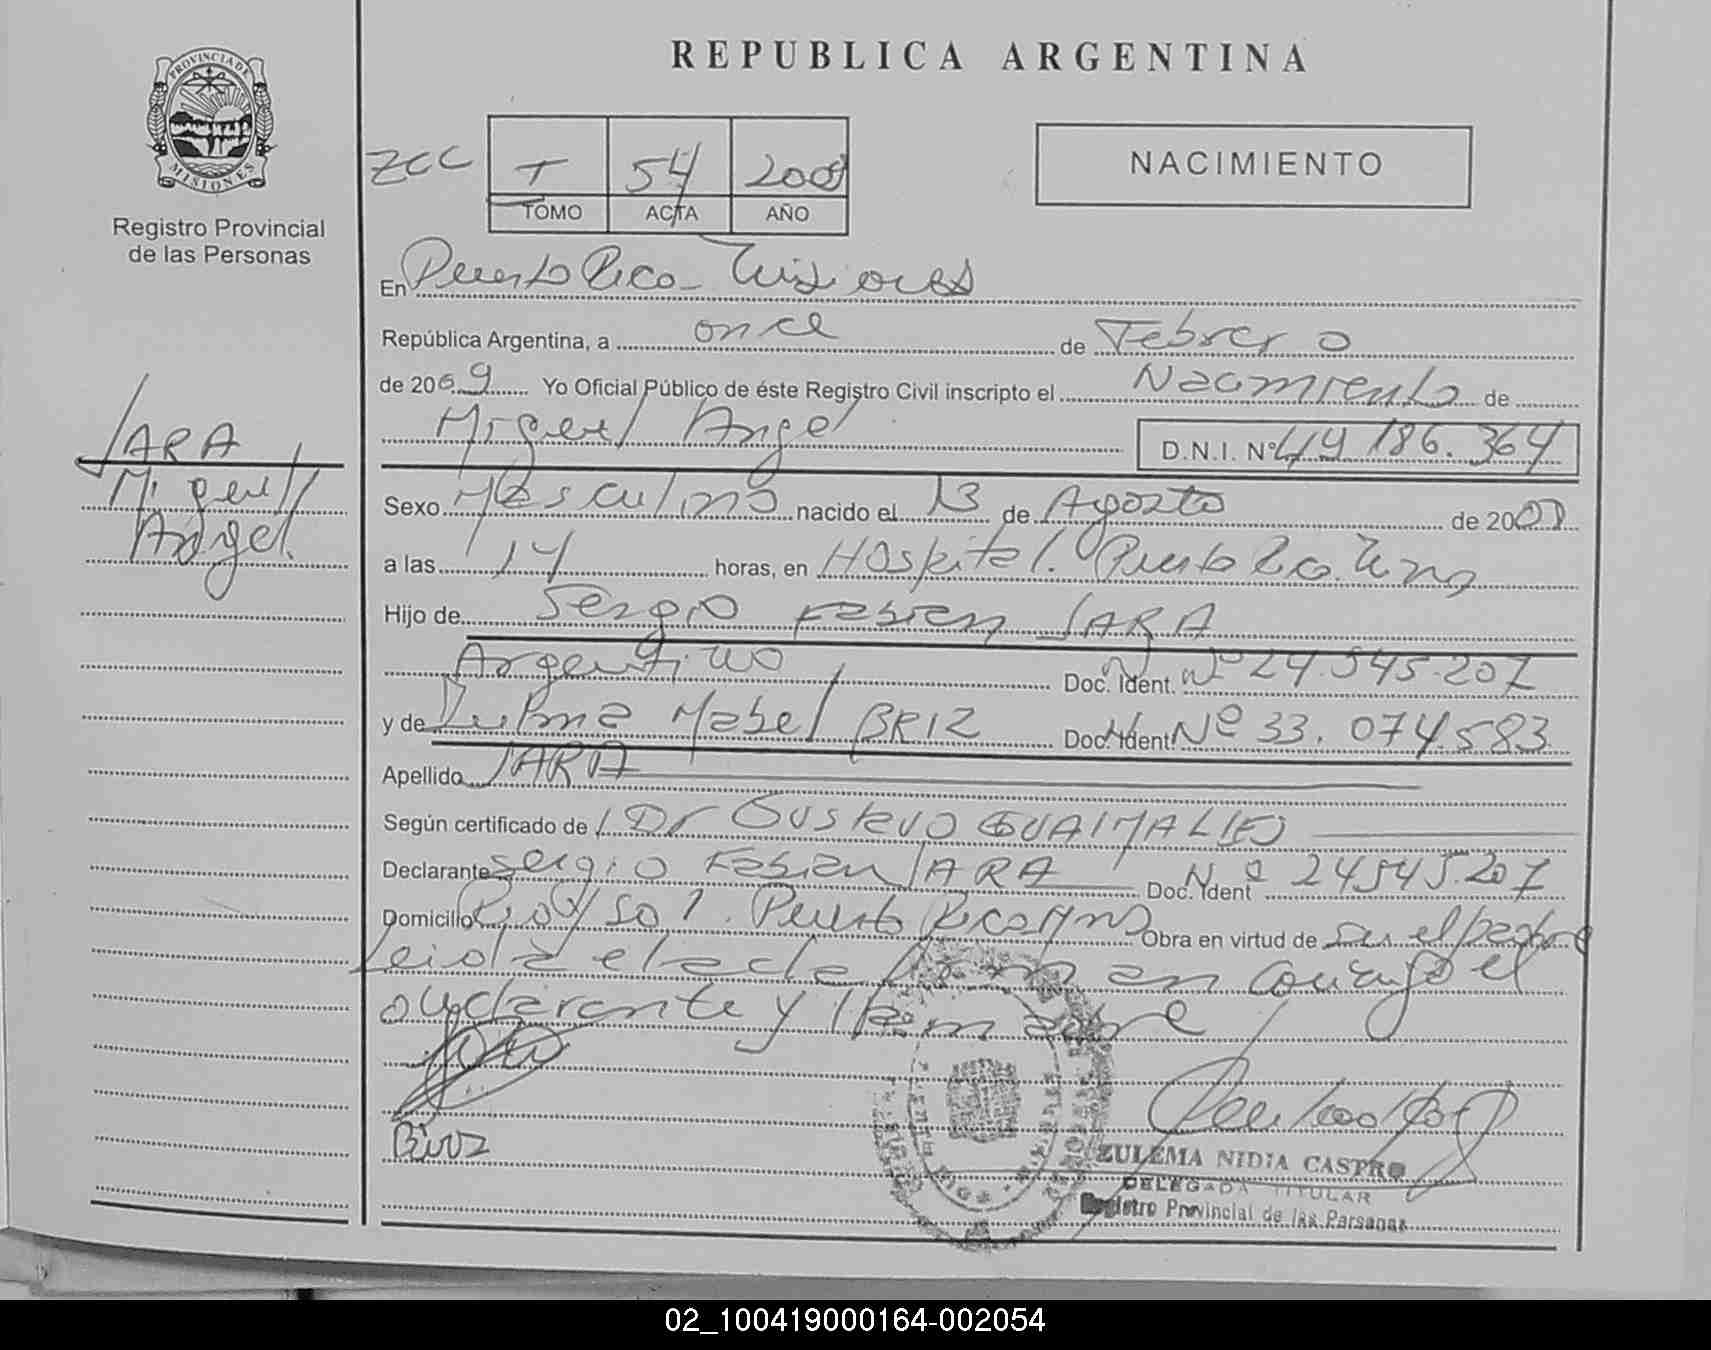 REPUBLICA ARGENTINA
PROVINCIA DE
MISIONES
Registro Provincial
de las Personas
NACIMIENTO
ZCC T 54 2009
TOMO ACTA AÑO
En Puerto Rico - Misiones
República Argentina, a once de Febrero
de 2009 Yo Oficial Público de éste Registro Civil inscripto el Nacimiento de
Miguel Angel D.N.I. Nº 49 186.364
JARA
Miguel
Angel
Sexo Masculino nacido el 13 de Agosto de 200
a las 14 horas, en Hospital. Puerto Rico.
Hijo de Sergio Fabian JARA
Argentino Doc. Ident. Nº 24.545.207
y de Mabel BRIZ Doc. Ident. Nº 33.074.583
Apellido JARA
Según certificado de Dr Gustavo
Declarante Sergio Fabian JARA Doc. Ident Nº 24545.207
Domicilio Puerto Rico Obra en virtud de ser el padre
Leida el acta firman conmigo el
declarante y la madre
ZULEMA NIDIA CASTRO
DELEGADA TITULAR
Registro Provincial de las Personas
02_100419000164-002054